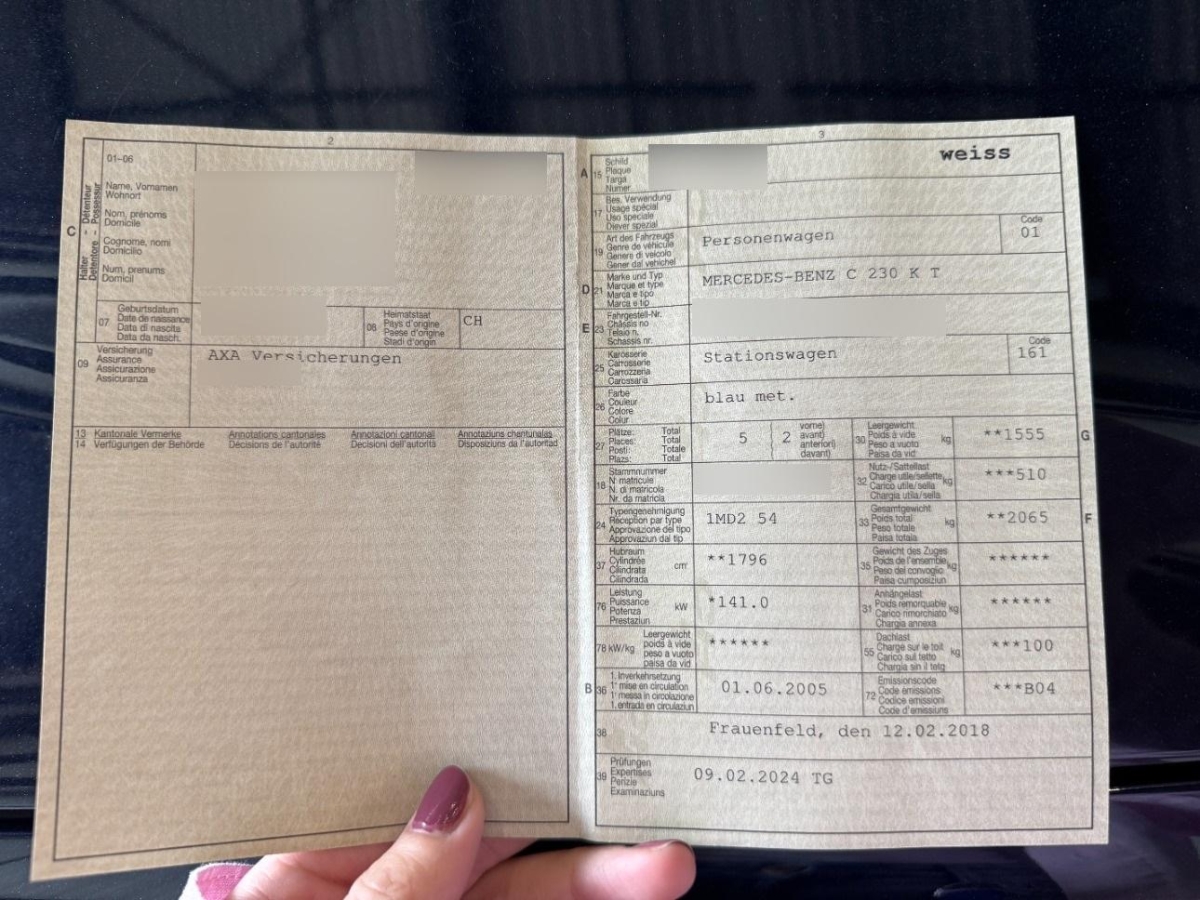 2
01-06
C
Halter - Détenteur
Detentore - Possessur
Name, Vornamen
Wohnort
Nom, prénoms
Domicile
Cognome, nomi
Domicilio
Num, prenums
Domicil
07
Geburtsdatum
Date de naissance
Data di nascita
Data da nasch.
08
Heimatstaat
Pays d'origine
Paese d'origine
Stadi d'origin
CH
09
Versicherung
Assurance
Assicurazione
Assicuranza
AXA Versicherungen
13 Kantonale Vermerke Annotations cantonales Annotazioni cantonal Annotaziuns chantunalas
14 Verfügungen der Behörde Décisions de l'autorité Decisioni dell'autorità Disposiziuns da l'autoritad
3
A
15
Schild
Plaque
Targa
Numer
weiss
17
Bes. Verwendung
Usage spécial
Uso speciale
Diever spezial
19
Art des Fahrzeugs
Genre de véhicule
Genere di veicolo
Gener dal vehichel
Personenwagen
Code
01
D
21
Marke und Typ
Marque et type
Marca e tipo
Marca e tip
MERCEDES-BENZ C 230 K T
E
23
Fahrgestell-Nr.
Châssis no
Telaio n.
Schassis nr.
25
Karosserie
Carrosserie
Carrozzeria
Carossaria
Stationswagen
Code
161
26
Farbe
Couleur
Colore
Colur
blau met.
27
Plätze: Total
Places: Total
Posti: Totale
Plazs: Total
5
2
vorne)
avant)
anteriori)
davant)
30
Leergewicht
Poids à vide
Peso a vuoto
Paisa da vid
kg
**1555
G
18
Stammnummer
N° matricule
N. di matricola
Nr. da matricla
32
Nutz-/Sattellast
Charge utile/sellette
Carico utile/sella
Chargia utila/sella
kg
***510
24
Typengenehmigung
Réception par type
Approvazione del tipo
Approvaziun dal tip
1MD2 54
33
Gesamtgewicht
Poids total
Peso totale
Paisa totala
kg
**2065
F
37
Hubraum
Cylindrée
Cilindrata
Cilindrada
cm³
**1796
35
Gewicht des Zuges
Poids de l'ensemble
Peso del convoglio
Paisa cumposiziun
kg
******
76
Leistung
Puissance
Potenza
Prestaziun
kW
*141.0
31
Anhängelast
Poids remorquable
Carico rimorchiato
Chargia annexa
kg
******
78 kW/kg
Leergewicht
poids à vide
peso a vuoto
paisa da vid
******
55
Dachlast
Charge sur le toit
Carico sul tetto
Chargia sin il tetg
kg
***100
B
36
1. Inverkehrsetzung
1re mise en circulation
1a messa in circolazione
1. entrada en circulaziun
01.06.2005
72
Emissionscode
Code émissions
Codice emissioni
Code d'emissiuns
***B04
38
Frauenfeld, den 12.02.2018
39
Prüfungen
Expertises
Perizie
Examinaziuns
09.02.2024 TG